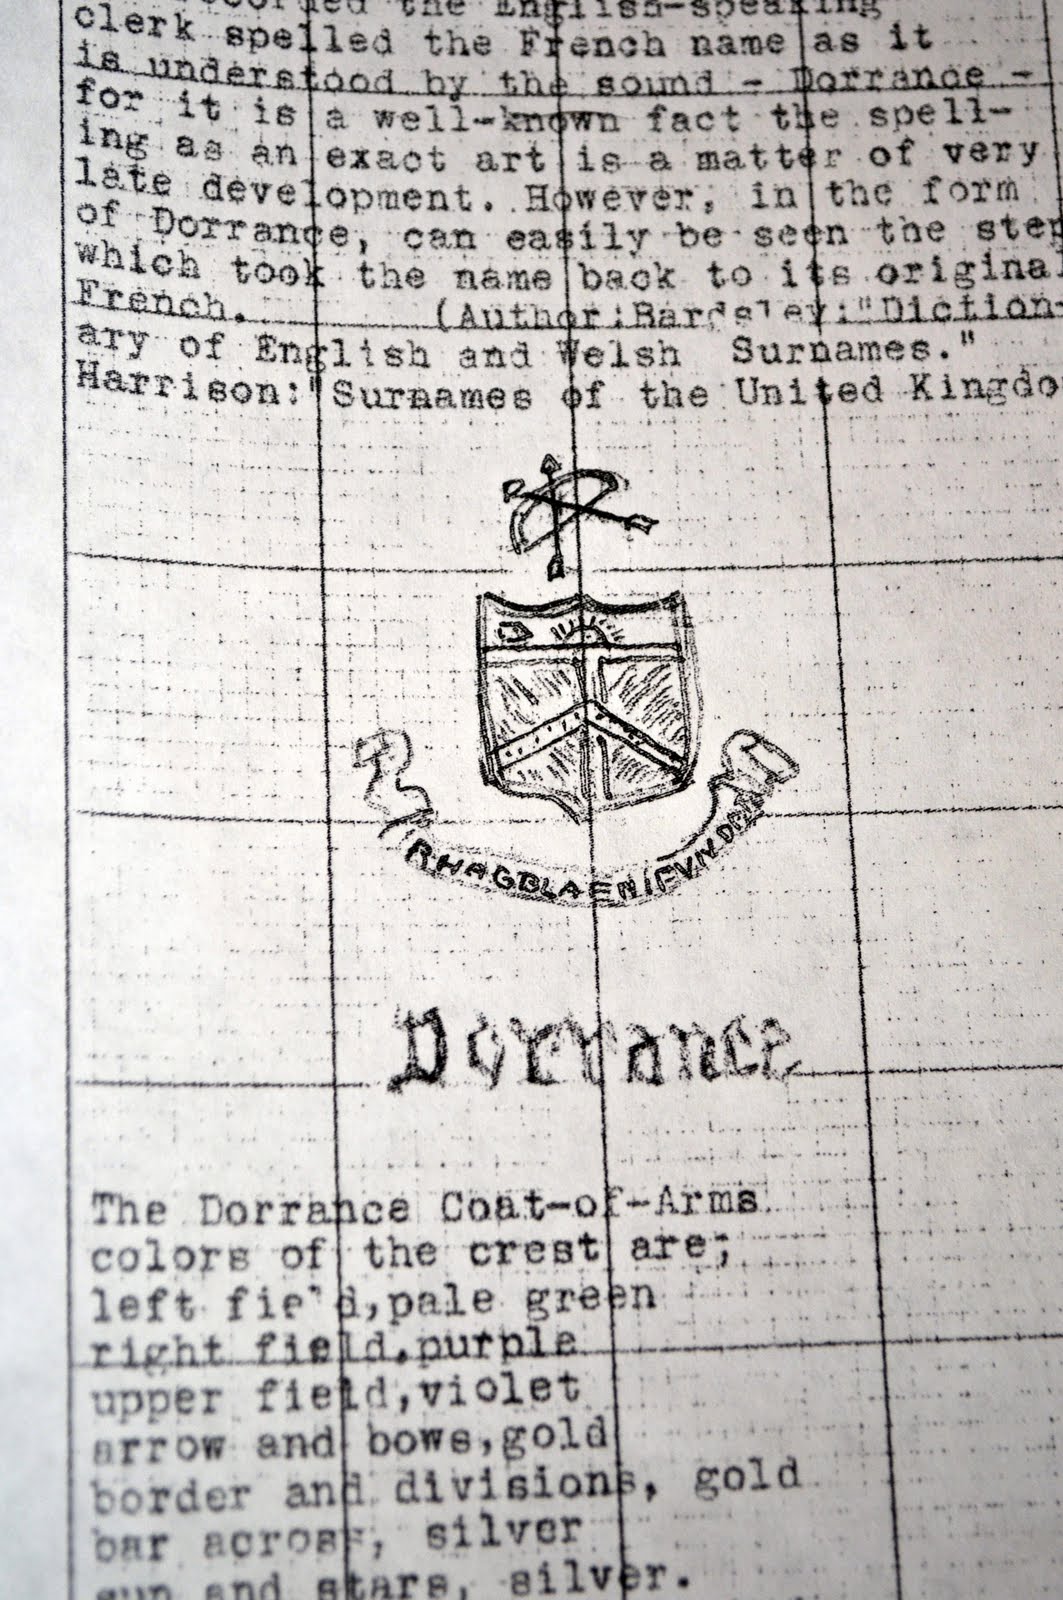 recorded the English-speaking
clerk spelled the French name as it
is understood by the sound - Dorrance -
for it is a well-known fact the spell-
ing as an exact art is a matter of very
late development. However, in the form
of Dorrance, can easily be seen the step
which took the name back to its original
French. (Author:Bardsley:"Diction-
ary of English and Welsh Surnames."
Harrison:"Surnames of the United Kingdo
Dorrance
The Dorrance Coat-of-Arms
colors of the crest are;
left field,pale green
right field,purple
upper field,violet
arrow and bows,gold
border and divisions, gold
bar across, silver
sun and stars, silver.